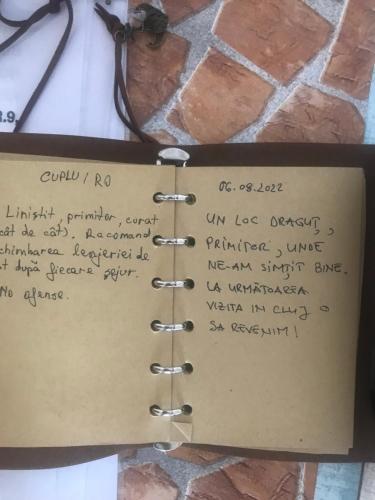 R.9.
CUPLU / RO
Liniștit, primitor, curat
cât de cât). Racomand
chimbarea lenjeriei de
t după fiecare sejur.
No ofense.
06.08.2022
UN LOC DRAGUȚ,
PRIMITOR, UNDE
NE-AM SIMȚIT BINE.
LA URMĂTOAREA
VIZITA IN CLUJ O
SA REVENIM!